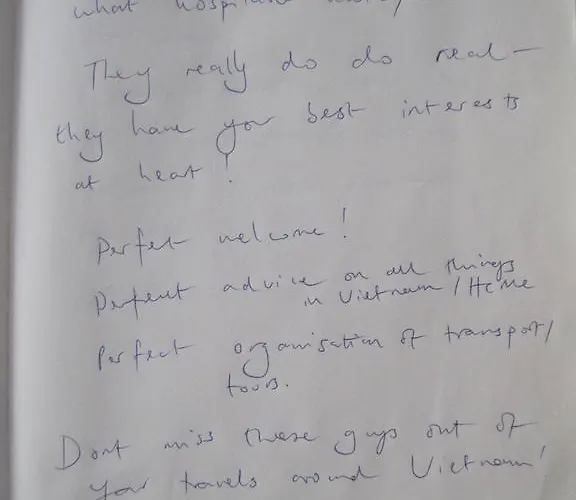 what
They really do do real -
they have you best interests
at heart!
Perfect welcome!
Perfect advice on all things
in Vietnam / HCMC
Perfect organisation of transport/
tours.
Dont miss these guys out of
your travels around Vietnam!